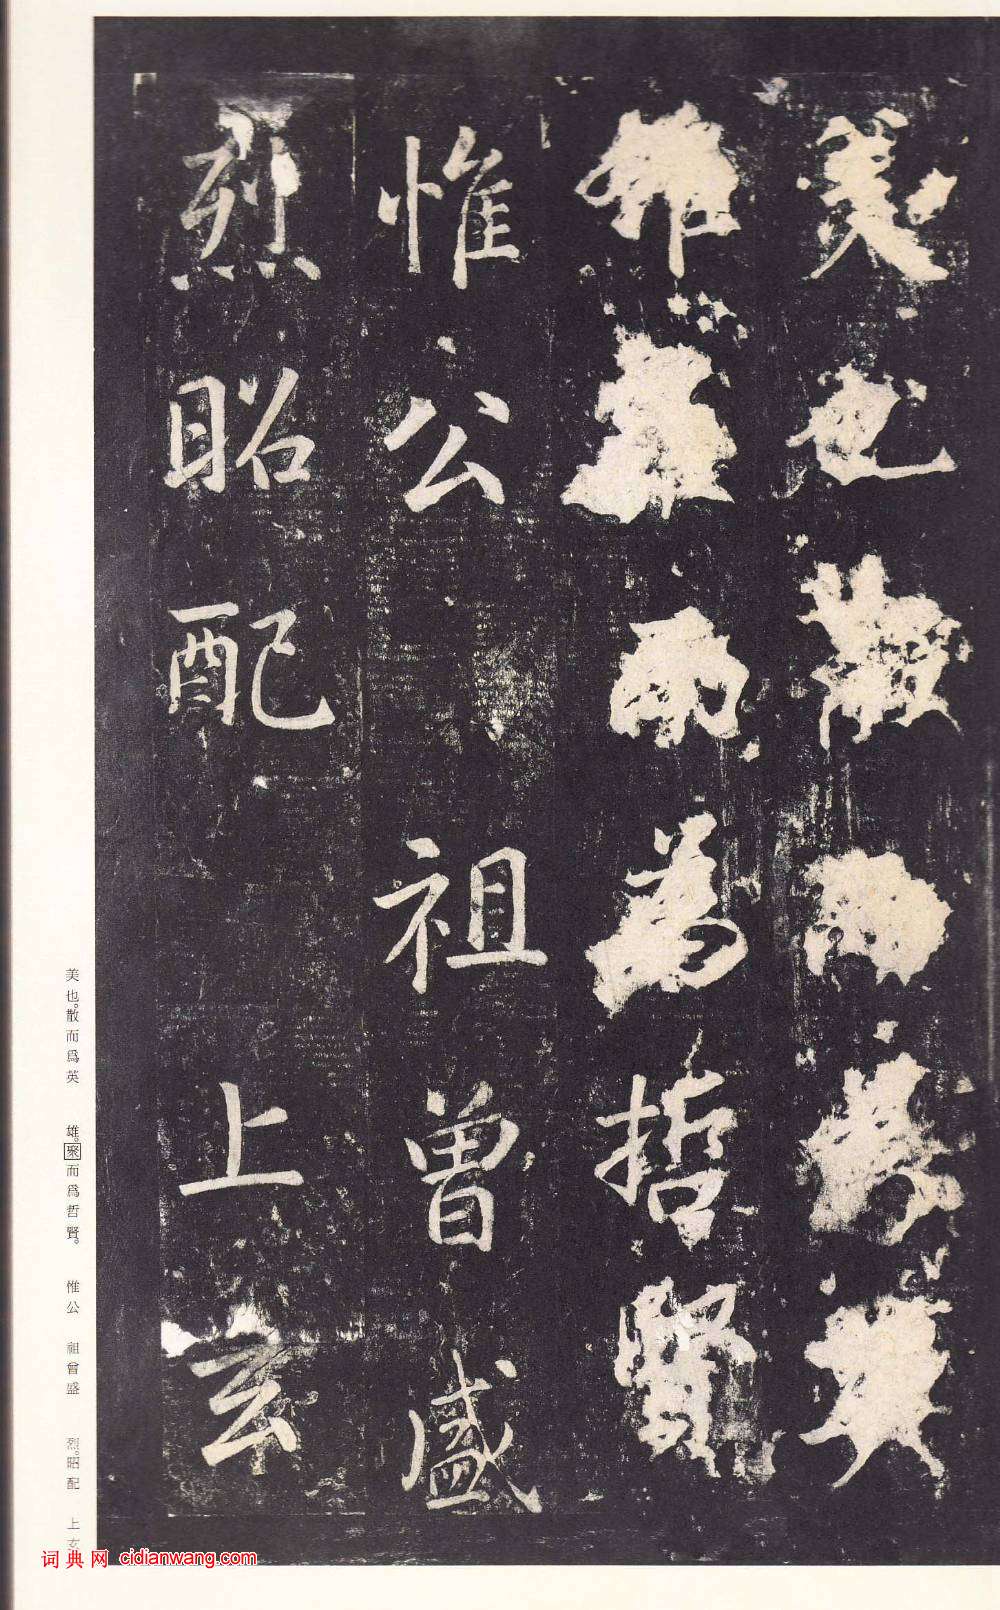 美也散而爲英
雄聚而爲哲賢
惟公祖曾盛
烈昭配上玄
美也。散而爲英 雄。聚而爲哲賢。 惟公 祖曾盛 烈。昭配 上玄
词典网 cidianwang.com